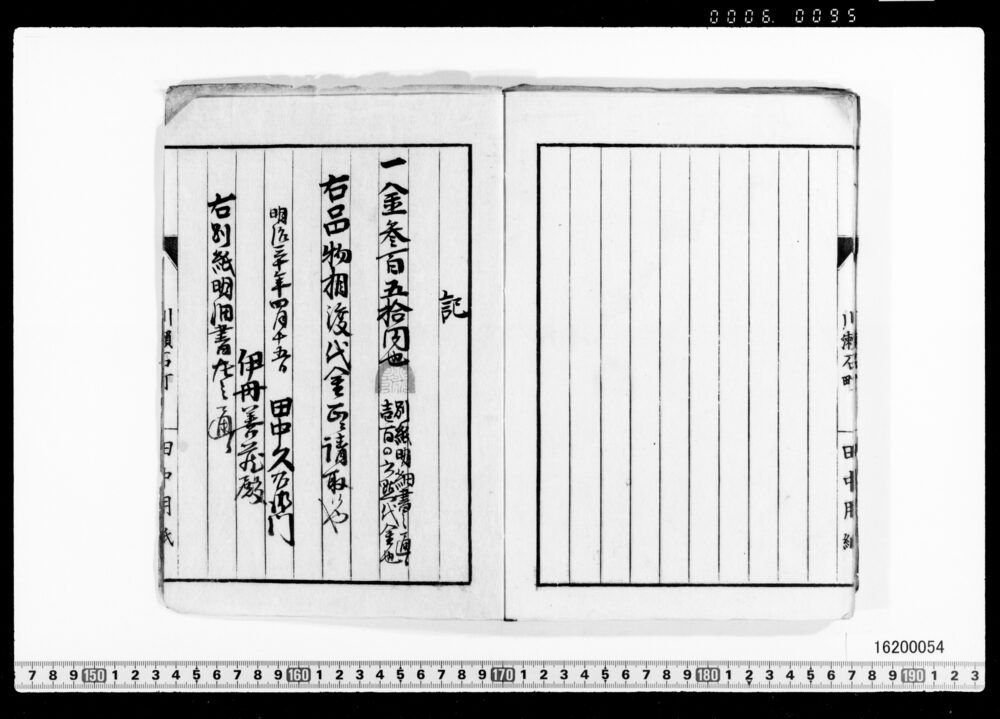 0006. 0095
川瀬石町 田中用紙
記
一金叁百五拾円也
別紙明細書之通
壱百〇六点代金也
右品物相渡代金正ニ請取候也
明治三十年四月十五日
田中久右衛門
伊丹善蔵殿
右別紙明細書左之通
川瀬石町 田中用紙
16200054
7 8 9 150 1 2 3 4 5 6 7 8 9 160 1 2 3 4 5 6 7 8 9 170 1 2 3 4 5 6 7 8 9 180 1 2 3 4 5 6 7 8 9 190 1 2 3